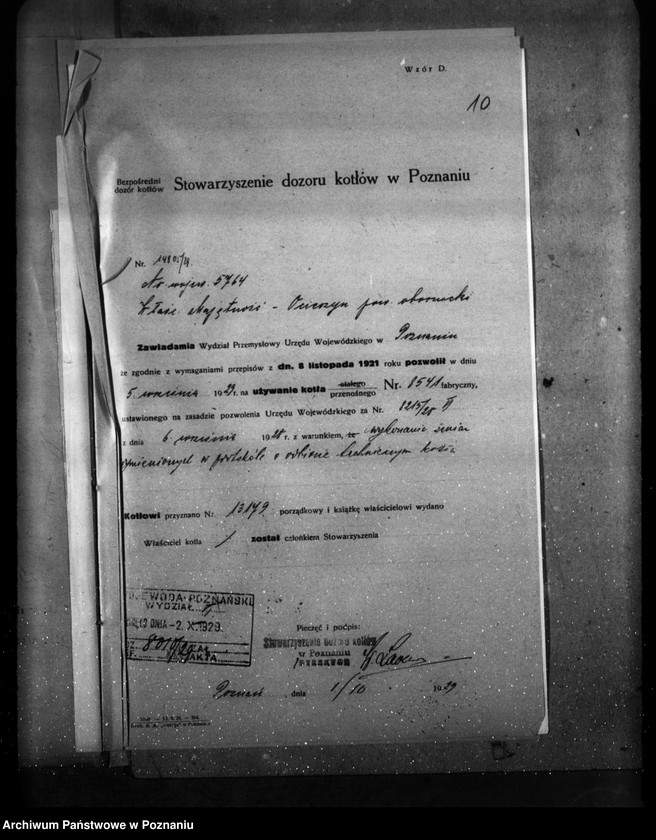 Wzór D.
10
Bezpośredni
dozór kotłów
Stowarzyszenie dozoru kotłów w Poznaniu
Nr.
Nr wojew. 5764
Właśc. Majętności - pow. obornicki
Zawiadamia Wydział Przemysłowy Urzędu Wojewódzkiego w Poznaniu
że zgodnie z wymaganiami przepisów z dn. 8 listopada 1921 roku pozwolił w dniu
5 września 1929 r. na używanie kotła stałego przenośnego Nr. 8541 fabryczny,
ustanowionego na zasadzie pozwolenia Urzędu Wojewódzkiego za Nr. 1215/28
z dnia 6 września 1928 r. z warunkiem, że wykonania zmian
wymienionych w protokóle o odbiorze technicznym kotła
Kotłowi przyznano Nr. 13179 porządkowy i książkę właścicielowi wydano
Właściciel kotła / został członkiem Stowarzyszenia
WOJEWODA POZNAŃSKI
WYDZIAŁ
DNIA -2. X. 1929.
Pieczęć i podpis:
Stowarzyszenie dozoru kotłów
w Poznaniu
DYREKTOR
Poznań, dnia 1/10 1929